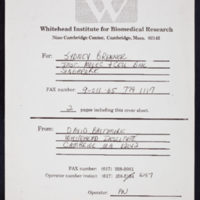 W
Whitehead Institute for Biomedical Research
Nine Cambridge Center, Cambridge, Mass. 02142
For: SYDNEY BRENNER
SINGAPORE
FAX number: 9-011-65 779 1117
2 pages including this cover sheet.
From: DAVID BALTIMORE
WHITEHEAD INSTITUTE
CAMBRIDGE MA 02142
FAX number: (617)
Operator number (617)
Operator: